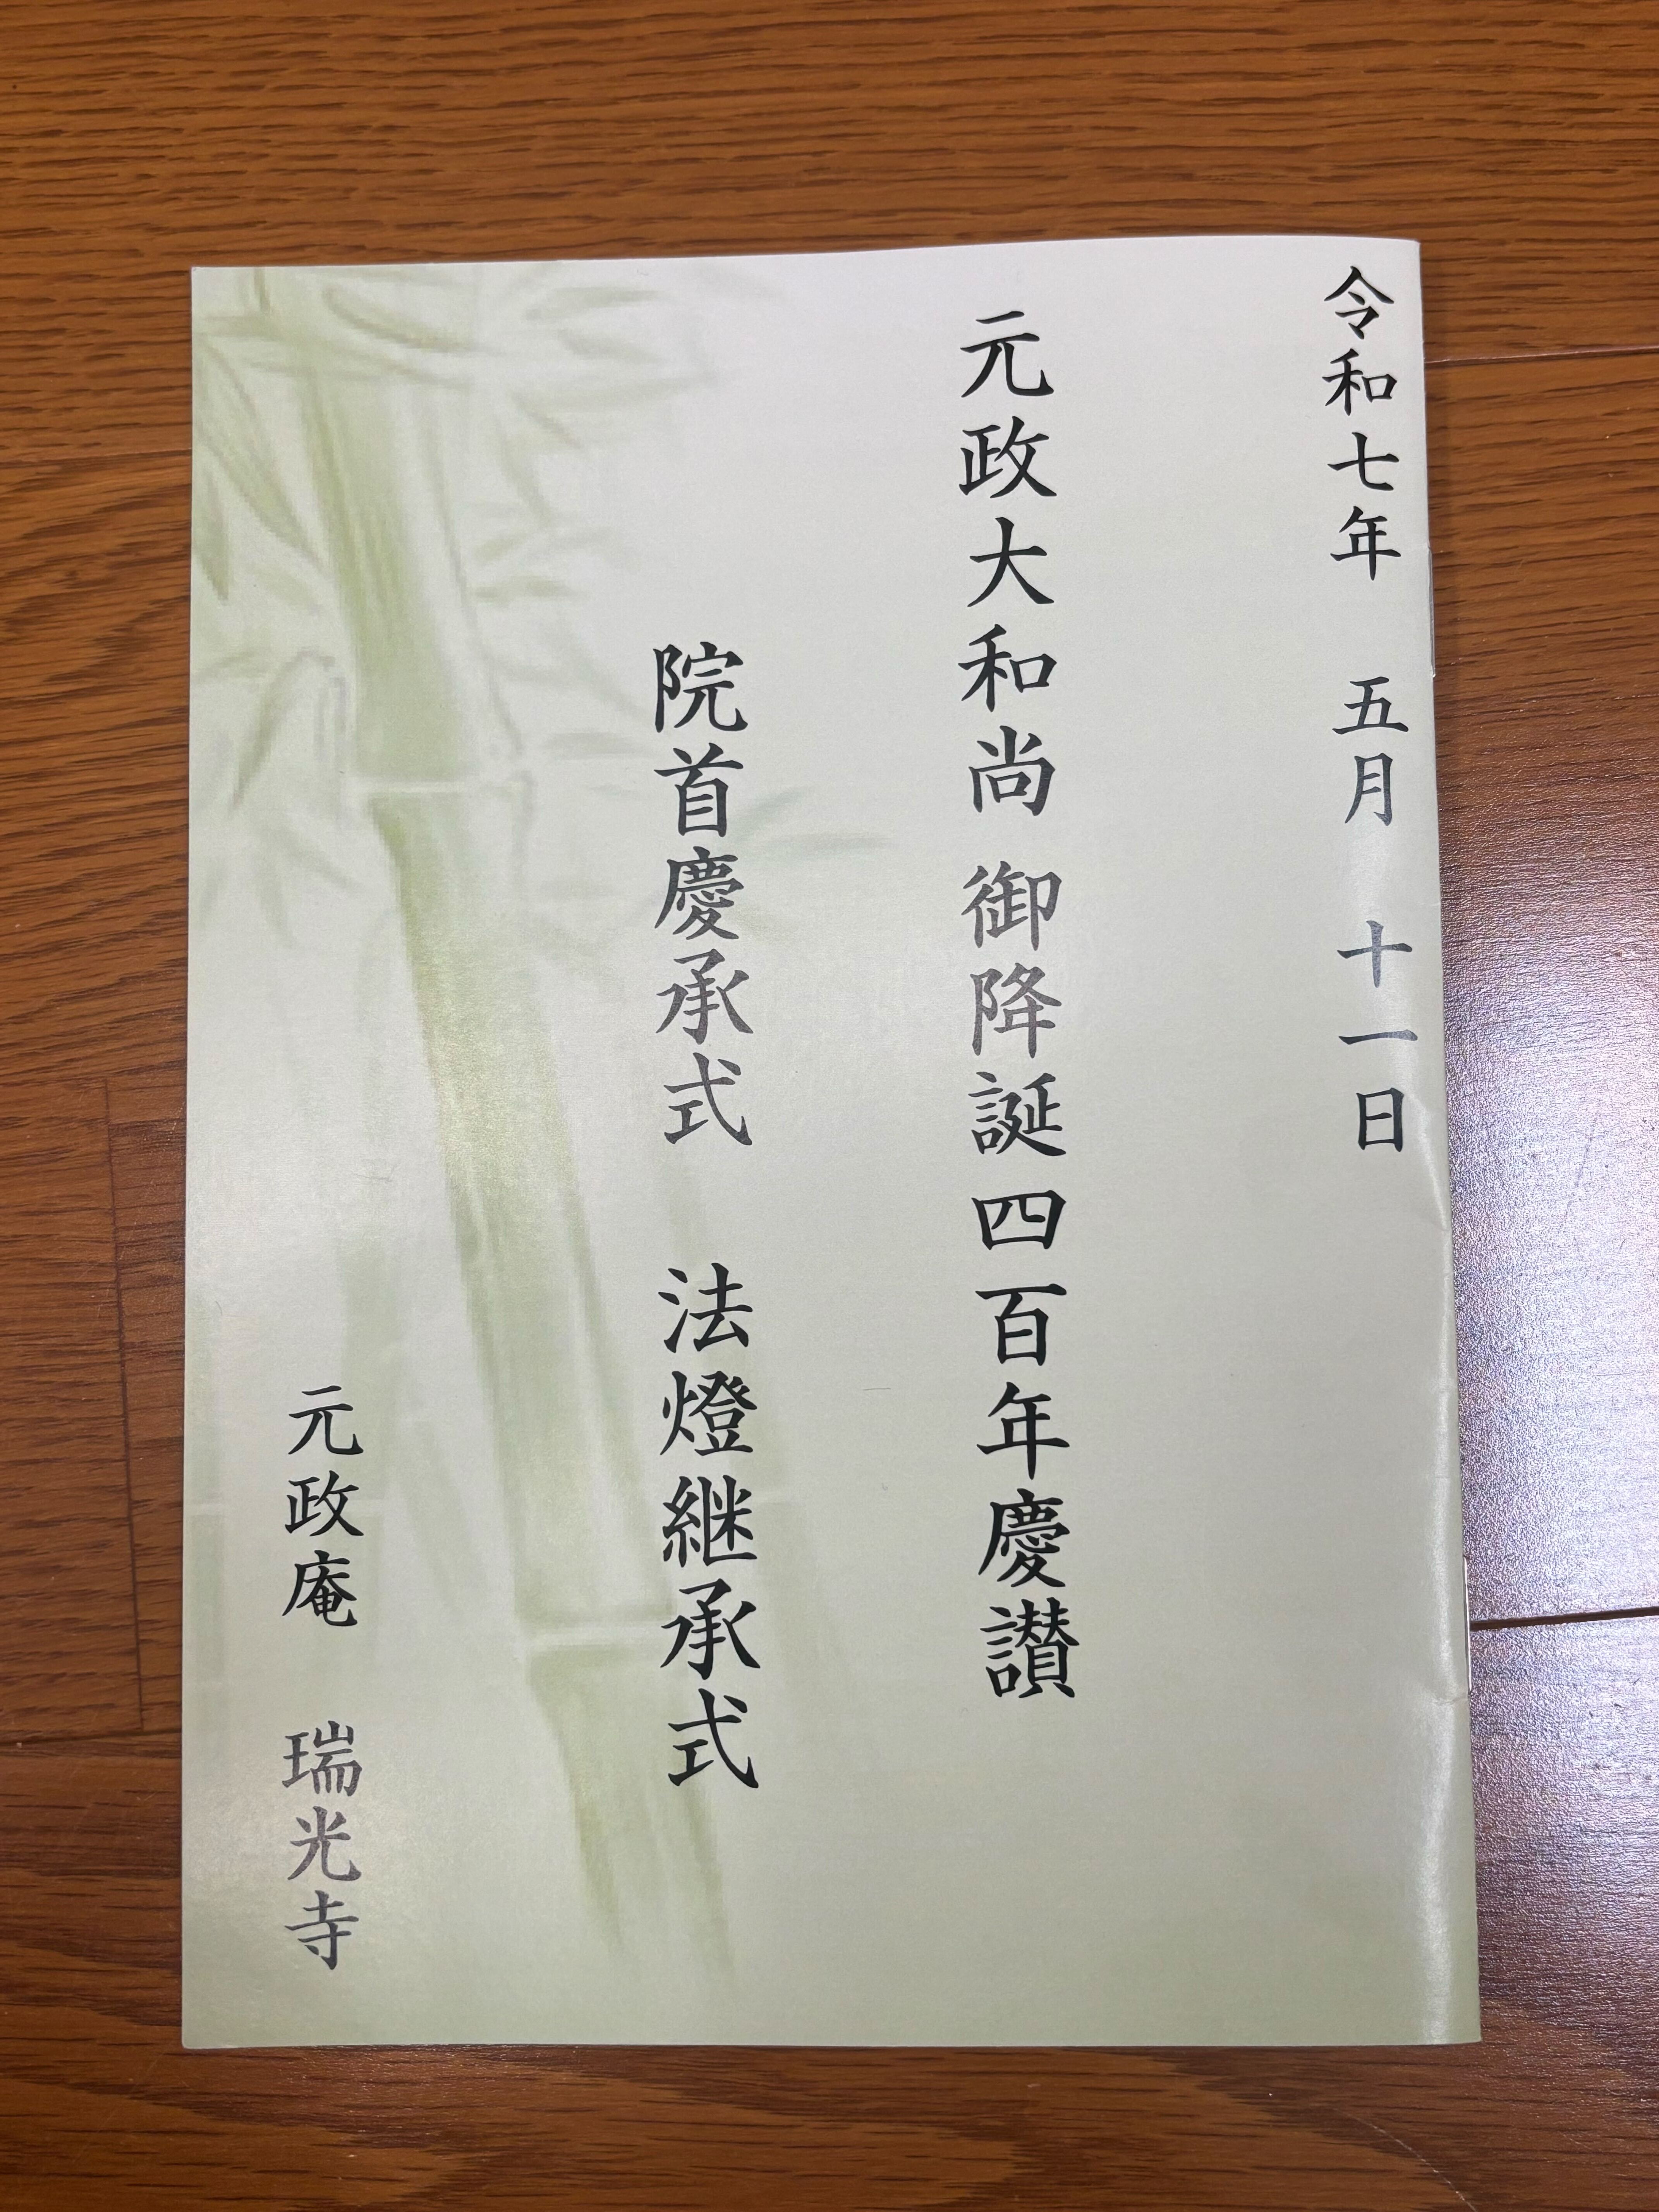 令和七年　五月　十一日
元政大和尚 御降誕四百年慶讃
院首慶承式　法燈継承式
元政庵　瑞光寺